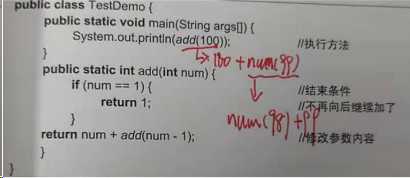 public class TestDemo {
public static void main(String args[]) {
System.out.println(add(100)); //执行方法
↳ 100 + num(99)
}
public static int add(int num) {
if (num == 1) { //结束条件
return 1; //不再向后继续加了
}
num(98) + 99
return num + add(num - 1); //修改参数内容
}
}